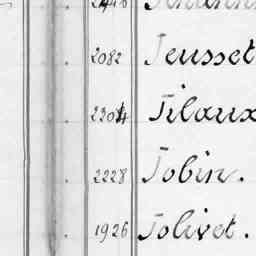 2082 Jeusset
2304 Tilaux
2228 Tobin.
1926 Tolivet.